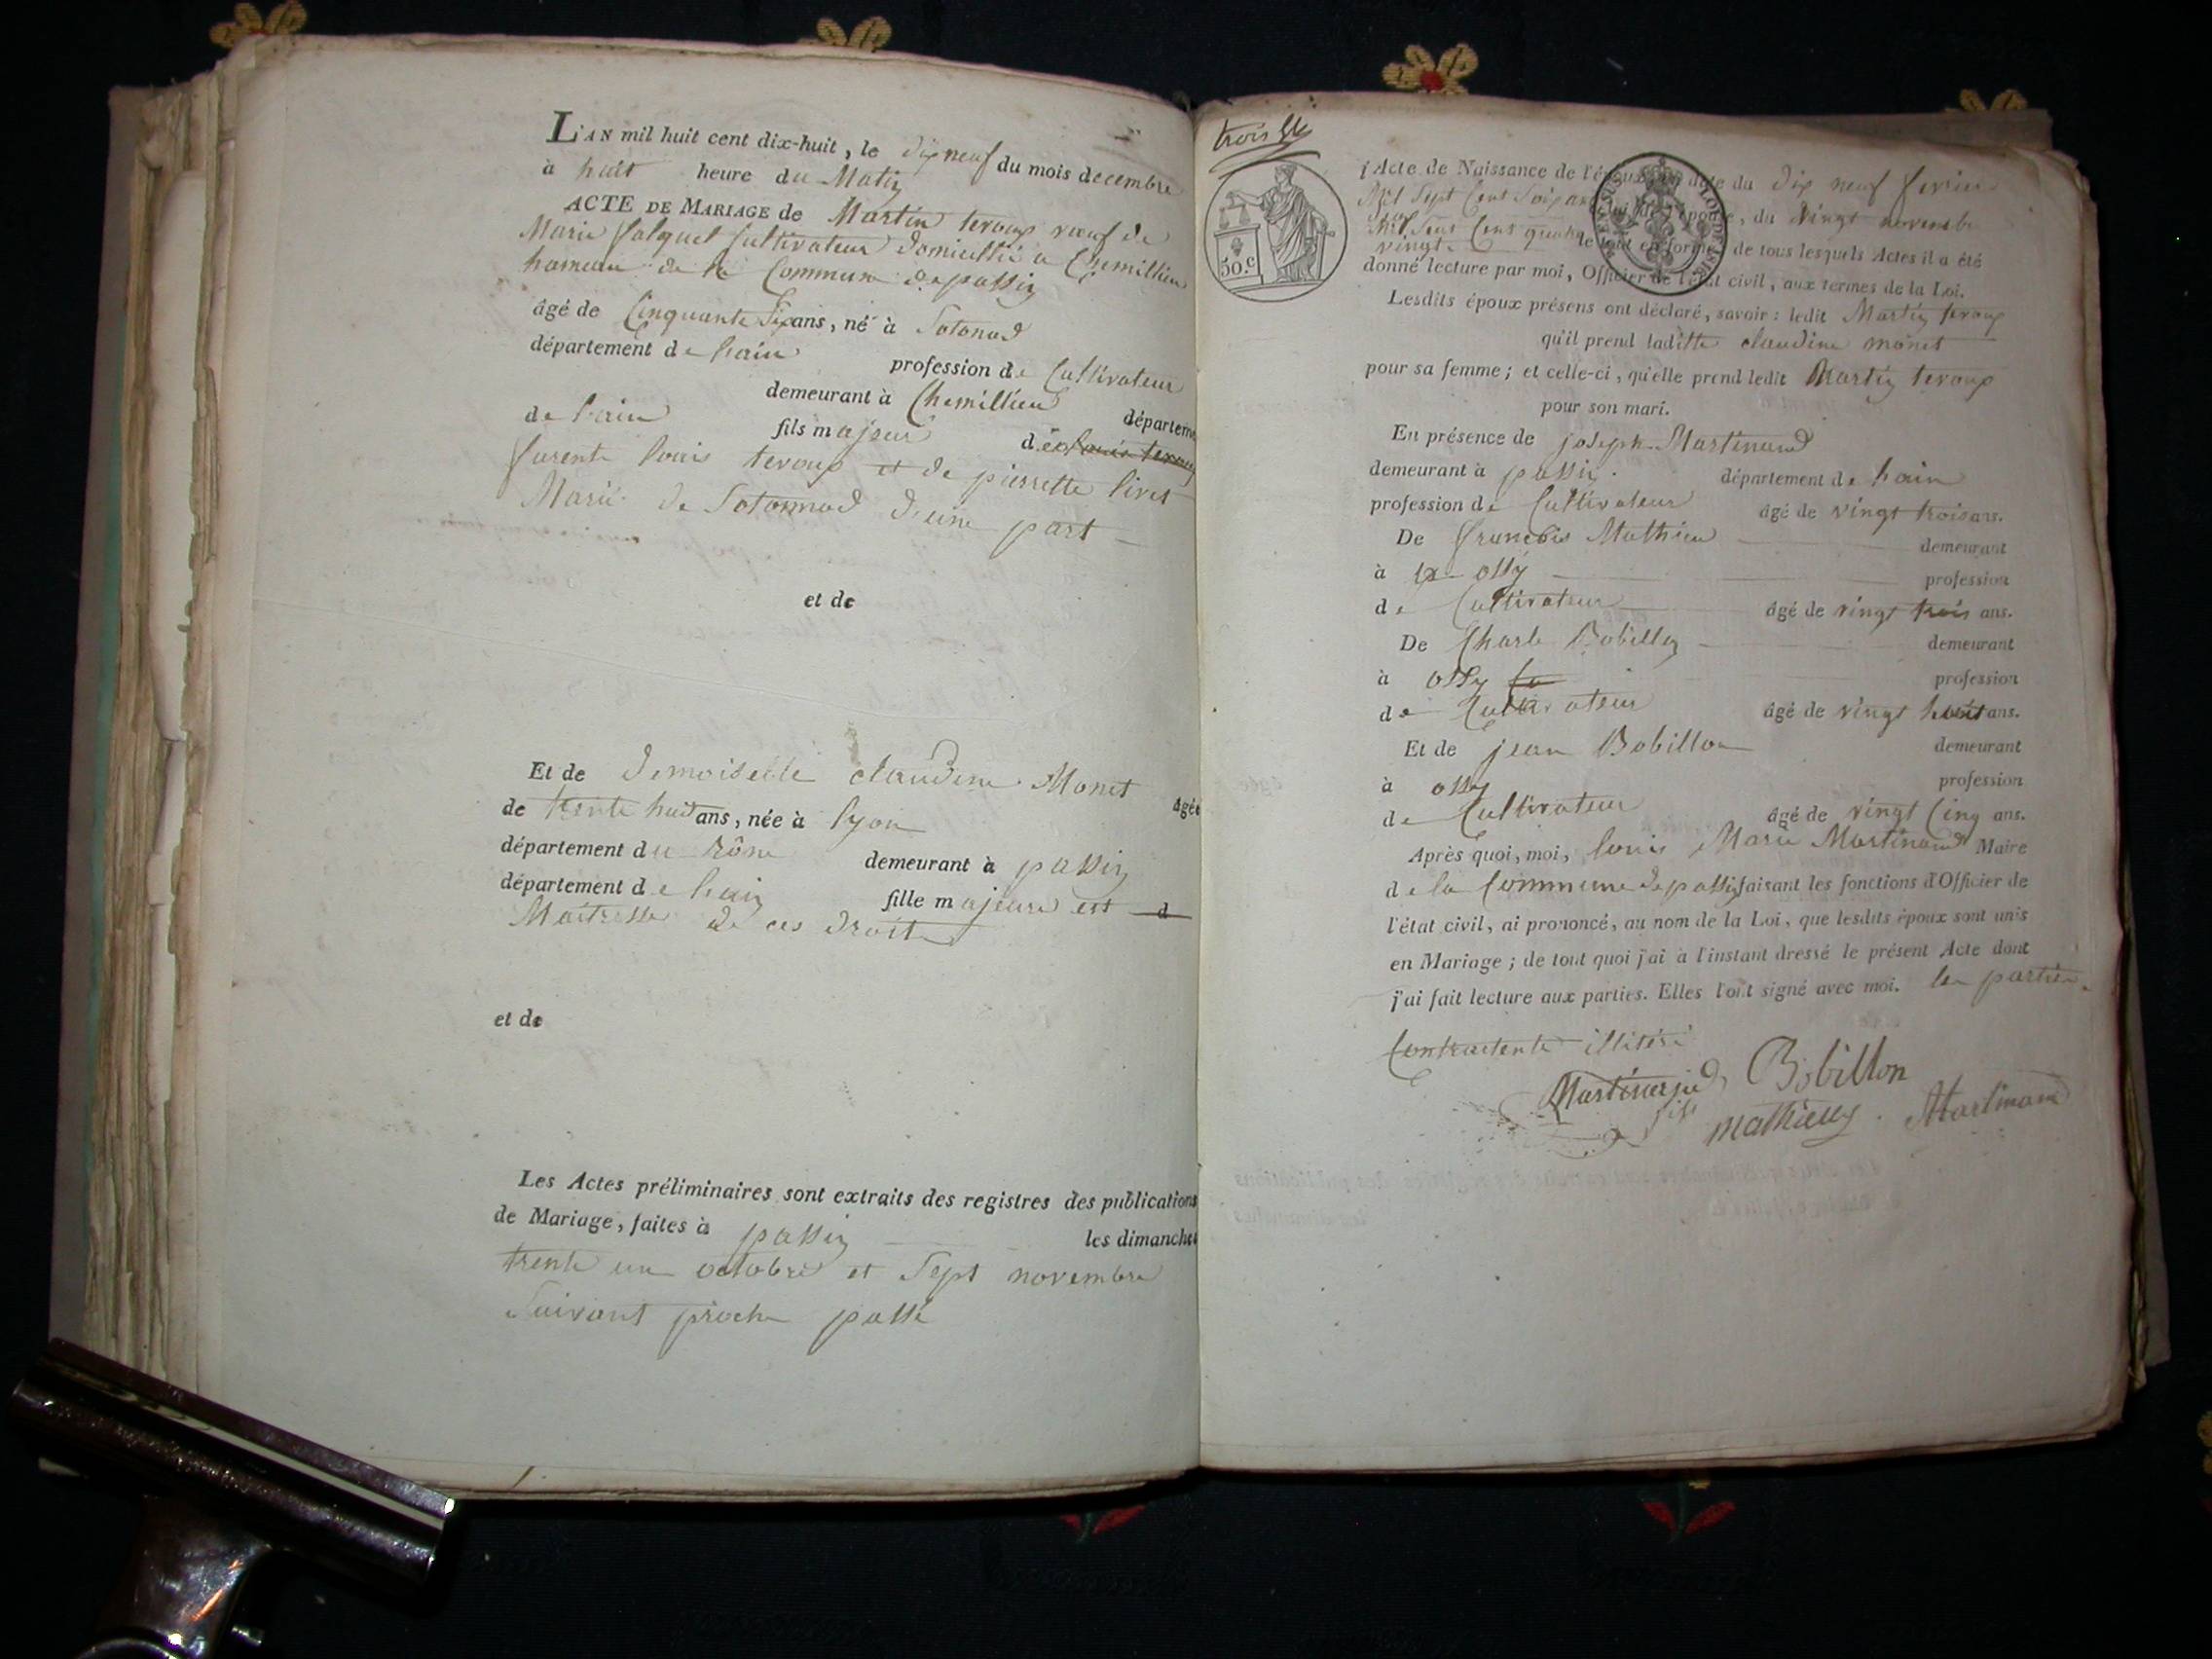 L'AN mil huit cent dix-huit, le dix neuf du mois decembre
à huit heure du Matin
ACTE DE MARIAGE de Martin teroux vœuf de
Marie falquet Cultivateur domicillié a Chemillieu
hameau de la Commune de passin
âgé de Cinquante Six ans, né à Sotonod
département de lain profession de Cultivateur
demeurant à Chemillieu départeme
de lain fils majeur de
furent louis teroux et de pierrette livet
Marié de Sotonnod d'une part
et de
Et de demoiselle claudine Monet âgée
de trente huit ans, née à lyon
département du rône demeurant à passin
département de lain fille majeure est d
Maitresse de ces droits
et de
Les Actes préliminaires sont extraits des registres des publications
de Mariage, faites à passin les dimanches
trente un octobre et Sept novembre
Suivant proche passé
trois
50.c
l'Acte de Naissance de l'époux en date du dix neuf fevrier
Mil Sept Cent Soixante de l'épouse, du vingt novembre
Mil Sept Cent quatre
vingt le tout en forme; de tous lesquels Actes il a été
donné lecture par moi, Officier de l'état civil, aux termes de la Loi.
Lesdits époux présens ont déclaré, savoir: ledit Martin teroux
qu'il prend laditte claudine monet
pour sa femme; et celle-ci, qu'elle prend ledit Martin teroux
pour son mari.
En présence de joseph Martinand
demeurant à passin département de lain
profession de Cultivateur âgé de vingt trois ans.
De francois Mathieu demeurant
à ossy profession
de Cultivateur âgé de vingt trois ans.
De Charle Bobillon demeurant
à ossy profession
de Cultivateur âgé de vingt huit ans.
Et de jean Bobillon demeurant
à ossy profession
de Cultivateur âgé de vingt Cinq ans.
Après quoi, moi, louis Marie Martinand Maire
de la Commune de passin faisant les fonctions d'Officier de
l'état civil, ai prononcé, au nom de la Loi, que lesdits époux sont unis
en Mariage; de tout quoi j'ai à l'instant dressé le présent Acte dont
j'ai fait lecture aux parties. Elles l'ont signé avec moi. les parties
Contractente illitéré
Bobillon
fils mathieu Martinand